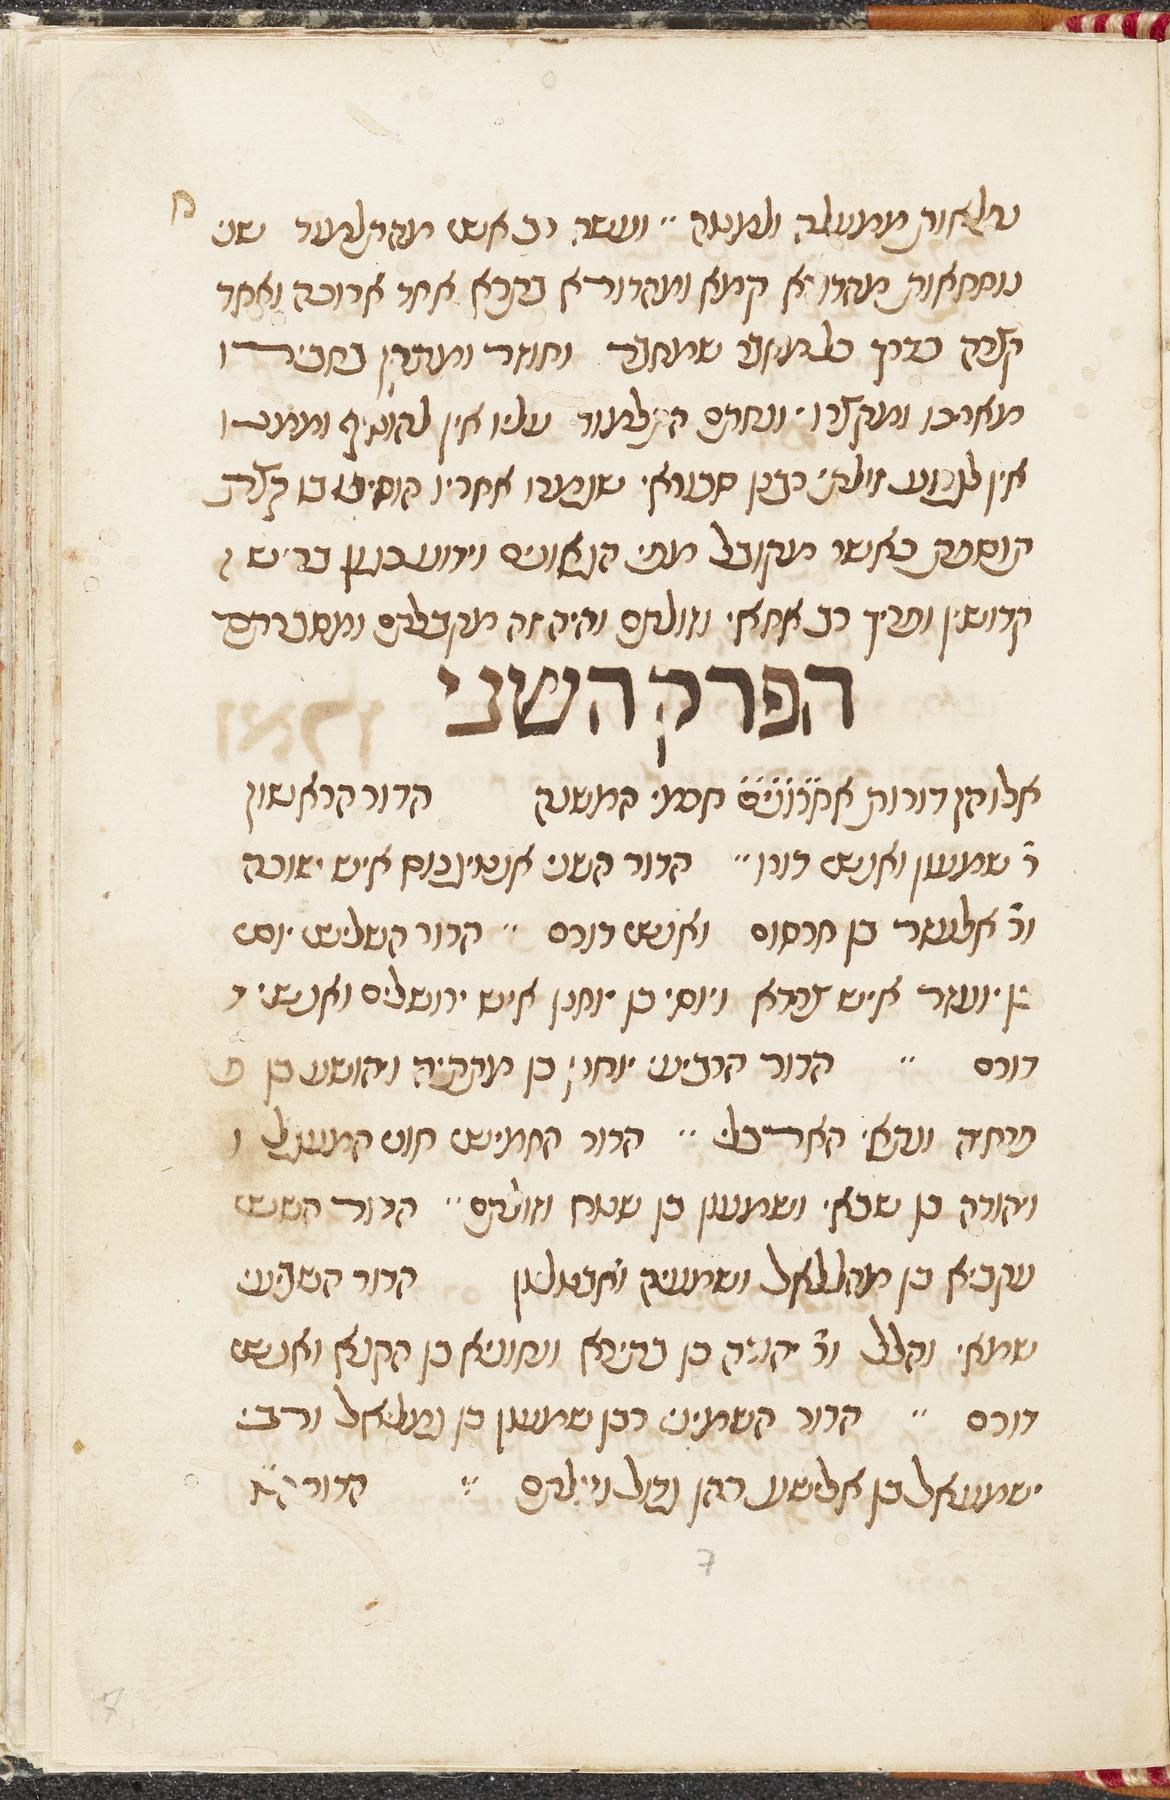 ח
מלאות ממעלה ולמטה ״ ועשה רב אשי מהתלמוד שני
נוסחאות מהדורא קמא ומהדורא בתרא אחד ארוכה ואחד
קצרה כדרך כל מחבר שמחבר וחוזר ומעיין בחבורו
מאריכו ומקצרו ונחתם התלמוד עליו אין להוסיף וממנו
אין לגרוע זולתי רבנן סבוראי שנמצאו אחריו הוסיפו בו קצת
הוספה כאשר מקובל מפי הגאונים וידוע בריש
קדושין ותריך רב אחאי וזולתם והיה זה מקבלתם ומסברתם
הפרק השני
אלו הן דורות אחרונים חכמי המשנה הדור הראשון
ר׳ שמעון ואנשי דורו ״ הדור השני אנטיגנוס איש שוכה
ור׳ אלעזר בן חרסום ואנשי דורם ״ הדור השלישי יוסי
בן יועזר איש צרדא ויוסי בן יוחנן איש ירושלים ואנשי ד
דורם ״ הדור הרביעי יוחנן בן מתתיה ויהושע בן פ
פרחיה ונתאי הארבלי ״ הדור החמישי חוני המעגל ו
ויהודה בן טבאי ושמעון בן שטח וזולתם ״ הדור הששי
עקביא בן מהללאל ושמעיה ואבטליון הדור השביעי
שמאי והלל ור׳ יהודה בן בתירא ונחוניא בן הקנא ואנשי
דורם ״ הדור השמיני רבן שמעון בן גמליאל ורבי
ישמעאל בן אלישע כהן גדול וזולתם ״ הדור הט׳
7
7